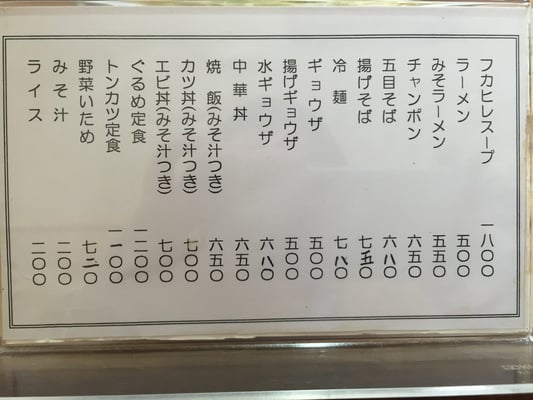 フカヒレスープ 一八〇〇
ラーメン 五〇〇
みそラーメン 五五〇
チャンポン 六五〇
五目そば 六八〇
揚げそば 七五〇
冷麺 七八〇
ギョウザ 五〇〇
揚げギョウザ 五〇〇
水ギョウザ 六八〇
中華丼 六五〇
焼飯(みそ汁つき) 六五〇
カツ丼(みそ汁つき) 七〇〇
エビ丼(みそ汁つき) 七〇〇
ぐるめ定食 一二〇〇
トンカツ定食 一一〇〇
野菜いため 七二〇
みそ汁 二〇〇
ライス 二〇〇